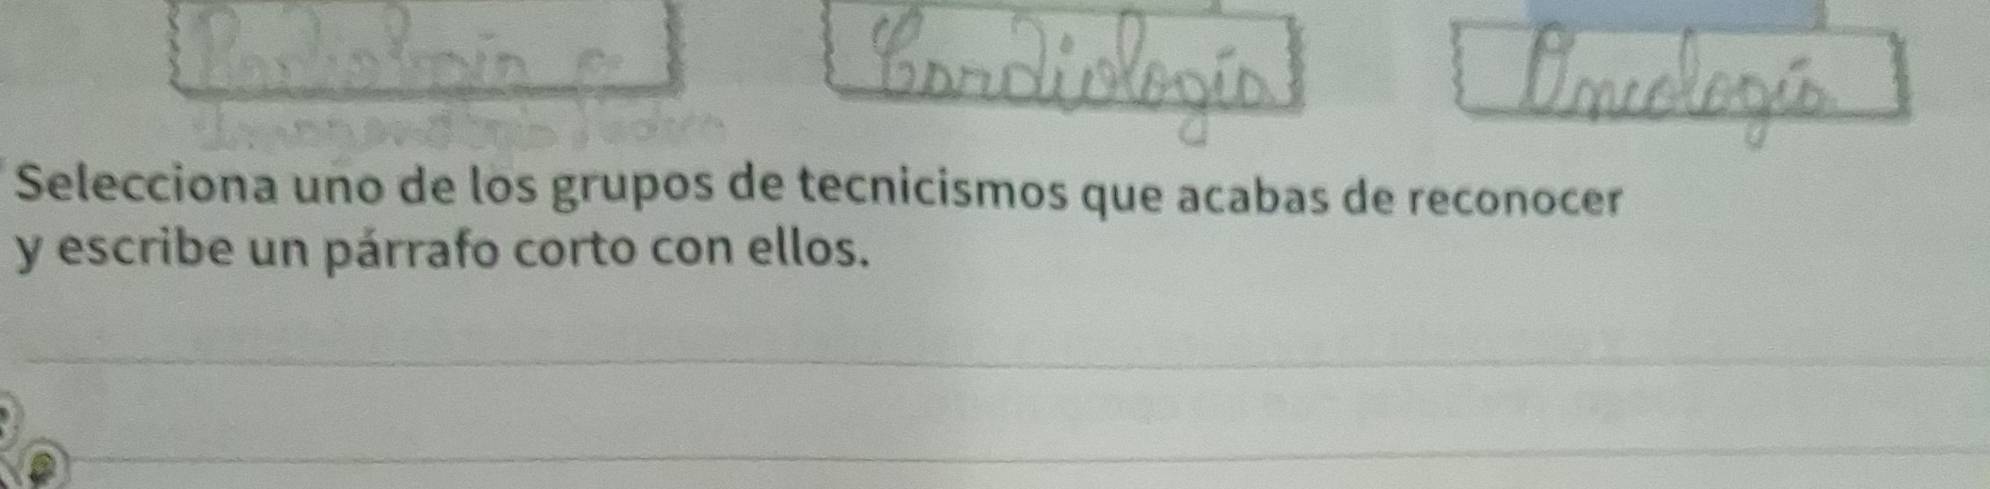 Cardiología Oncología
Selecciona uno de los grupos de tecnicismos que acabas de reconocer
y escribe un párrafo corto con ellos.